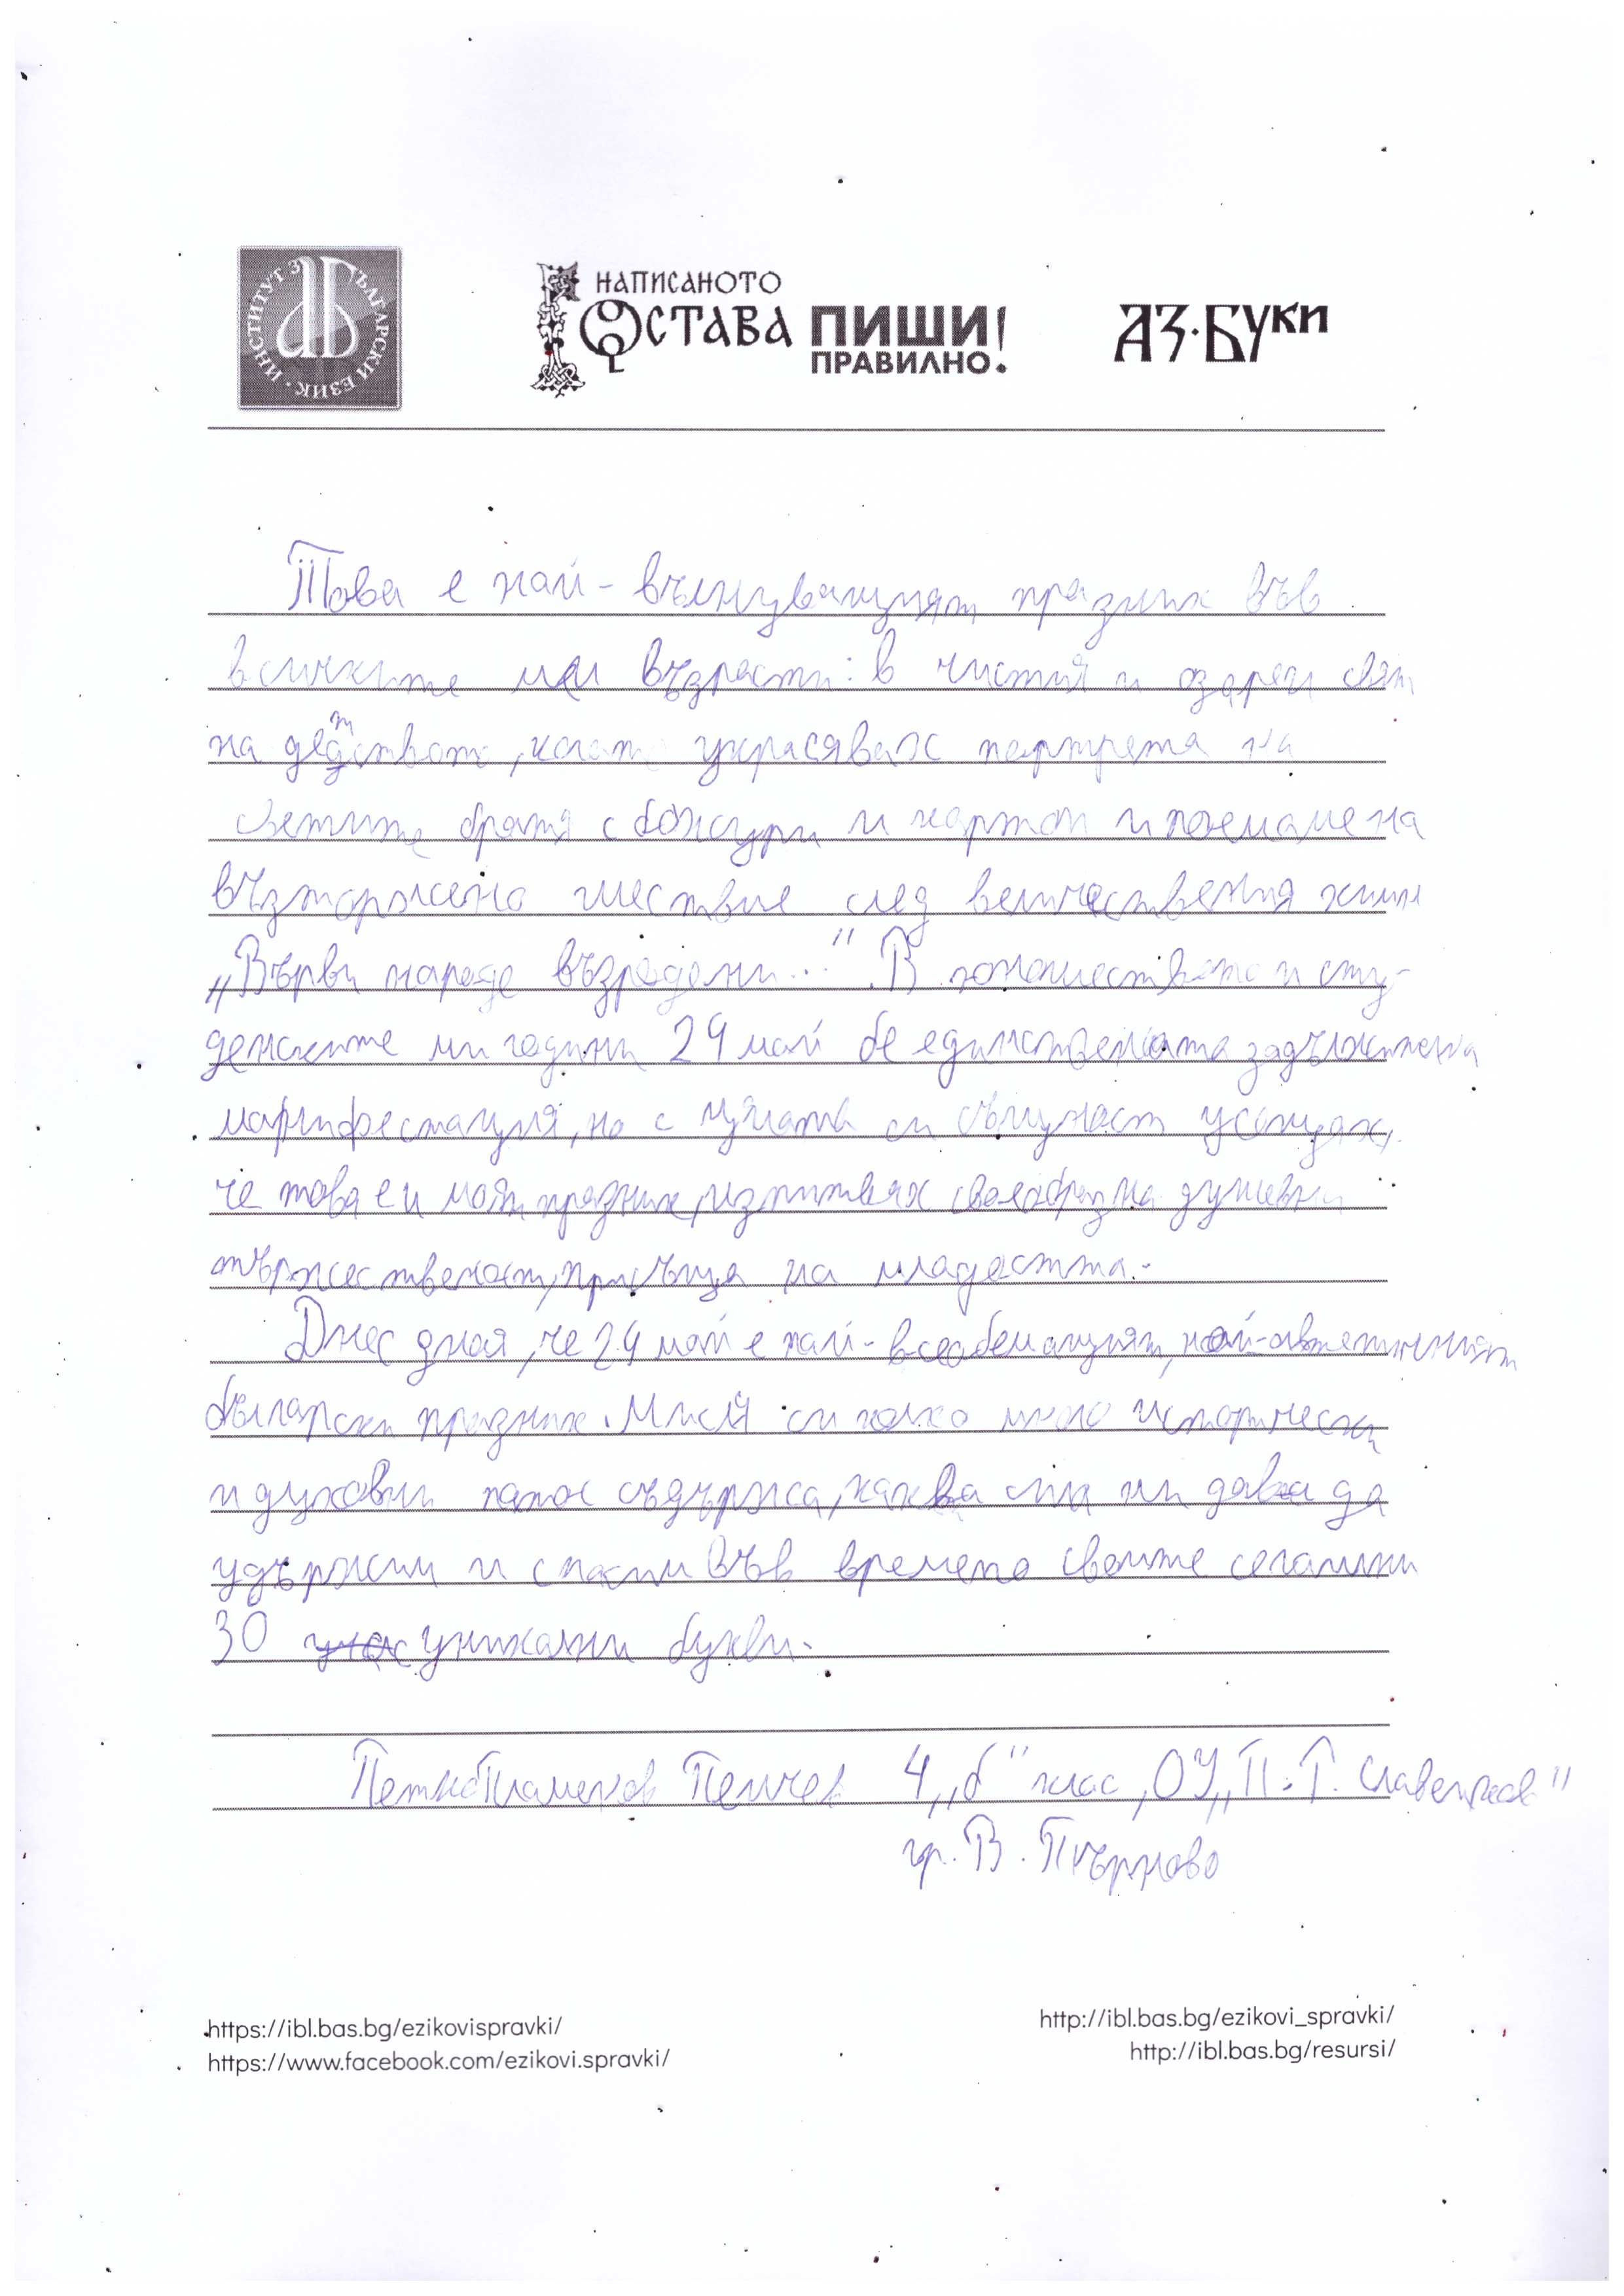 ИНСТИТУТ ЗА БЪЛГАРСКИ ЕЗИК
НАПИСАНОТО
ОСТАВА ПИШИ!
ПРАВИЛНО.
АЗ·БУКИ
Това е най-вълнуващият празник във
всичките ми възрасти: в чистия и озарен свят
на детството, когато украсявах портрета на
светите братя с божури и картон и поемаме на
възторжено шествие след величествения химн
„Върви народе възродени...". В юношеството и сту-
денските ми години 24 май бе единствената задължителна
манифестация, но с цялата си същност усещах,
че това е и моят празник, изпитвах своеобразна душевна
тържественост, присъща на младостта.
Днес зная, че 24 май е най-всеобемащият, най-автентичният
български празник. Мисля си колко много исторически
и духовен патос съдържа, каква сила ни дава да
удържим и спасим във времето своите сегашни
30 уникални букви.
Петко Пламенов Пенчев 4 „б" клас, ОУ „П. Р. Славейков"
гр. В. Търново
https://ibl.bas.bg/ezikovispravki/
https://www.facebook.com/ezikovi.spravki/
http://ibl.bas.bg/ezikovi_spravki/
http://ibl.bas.bg/resursi/